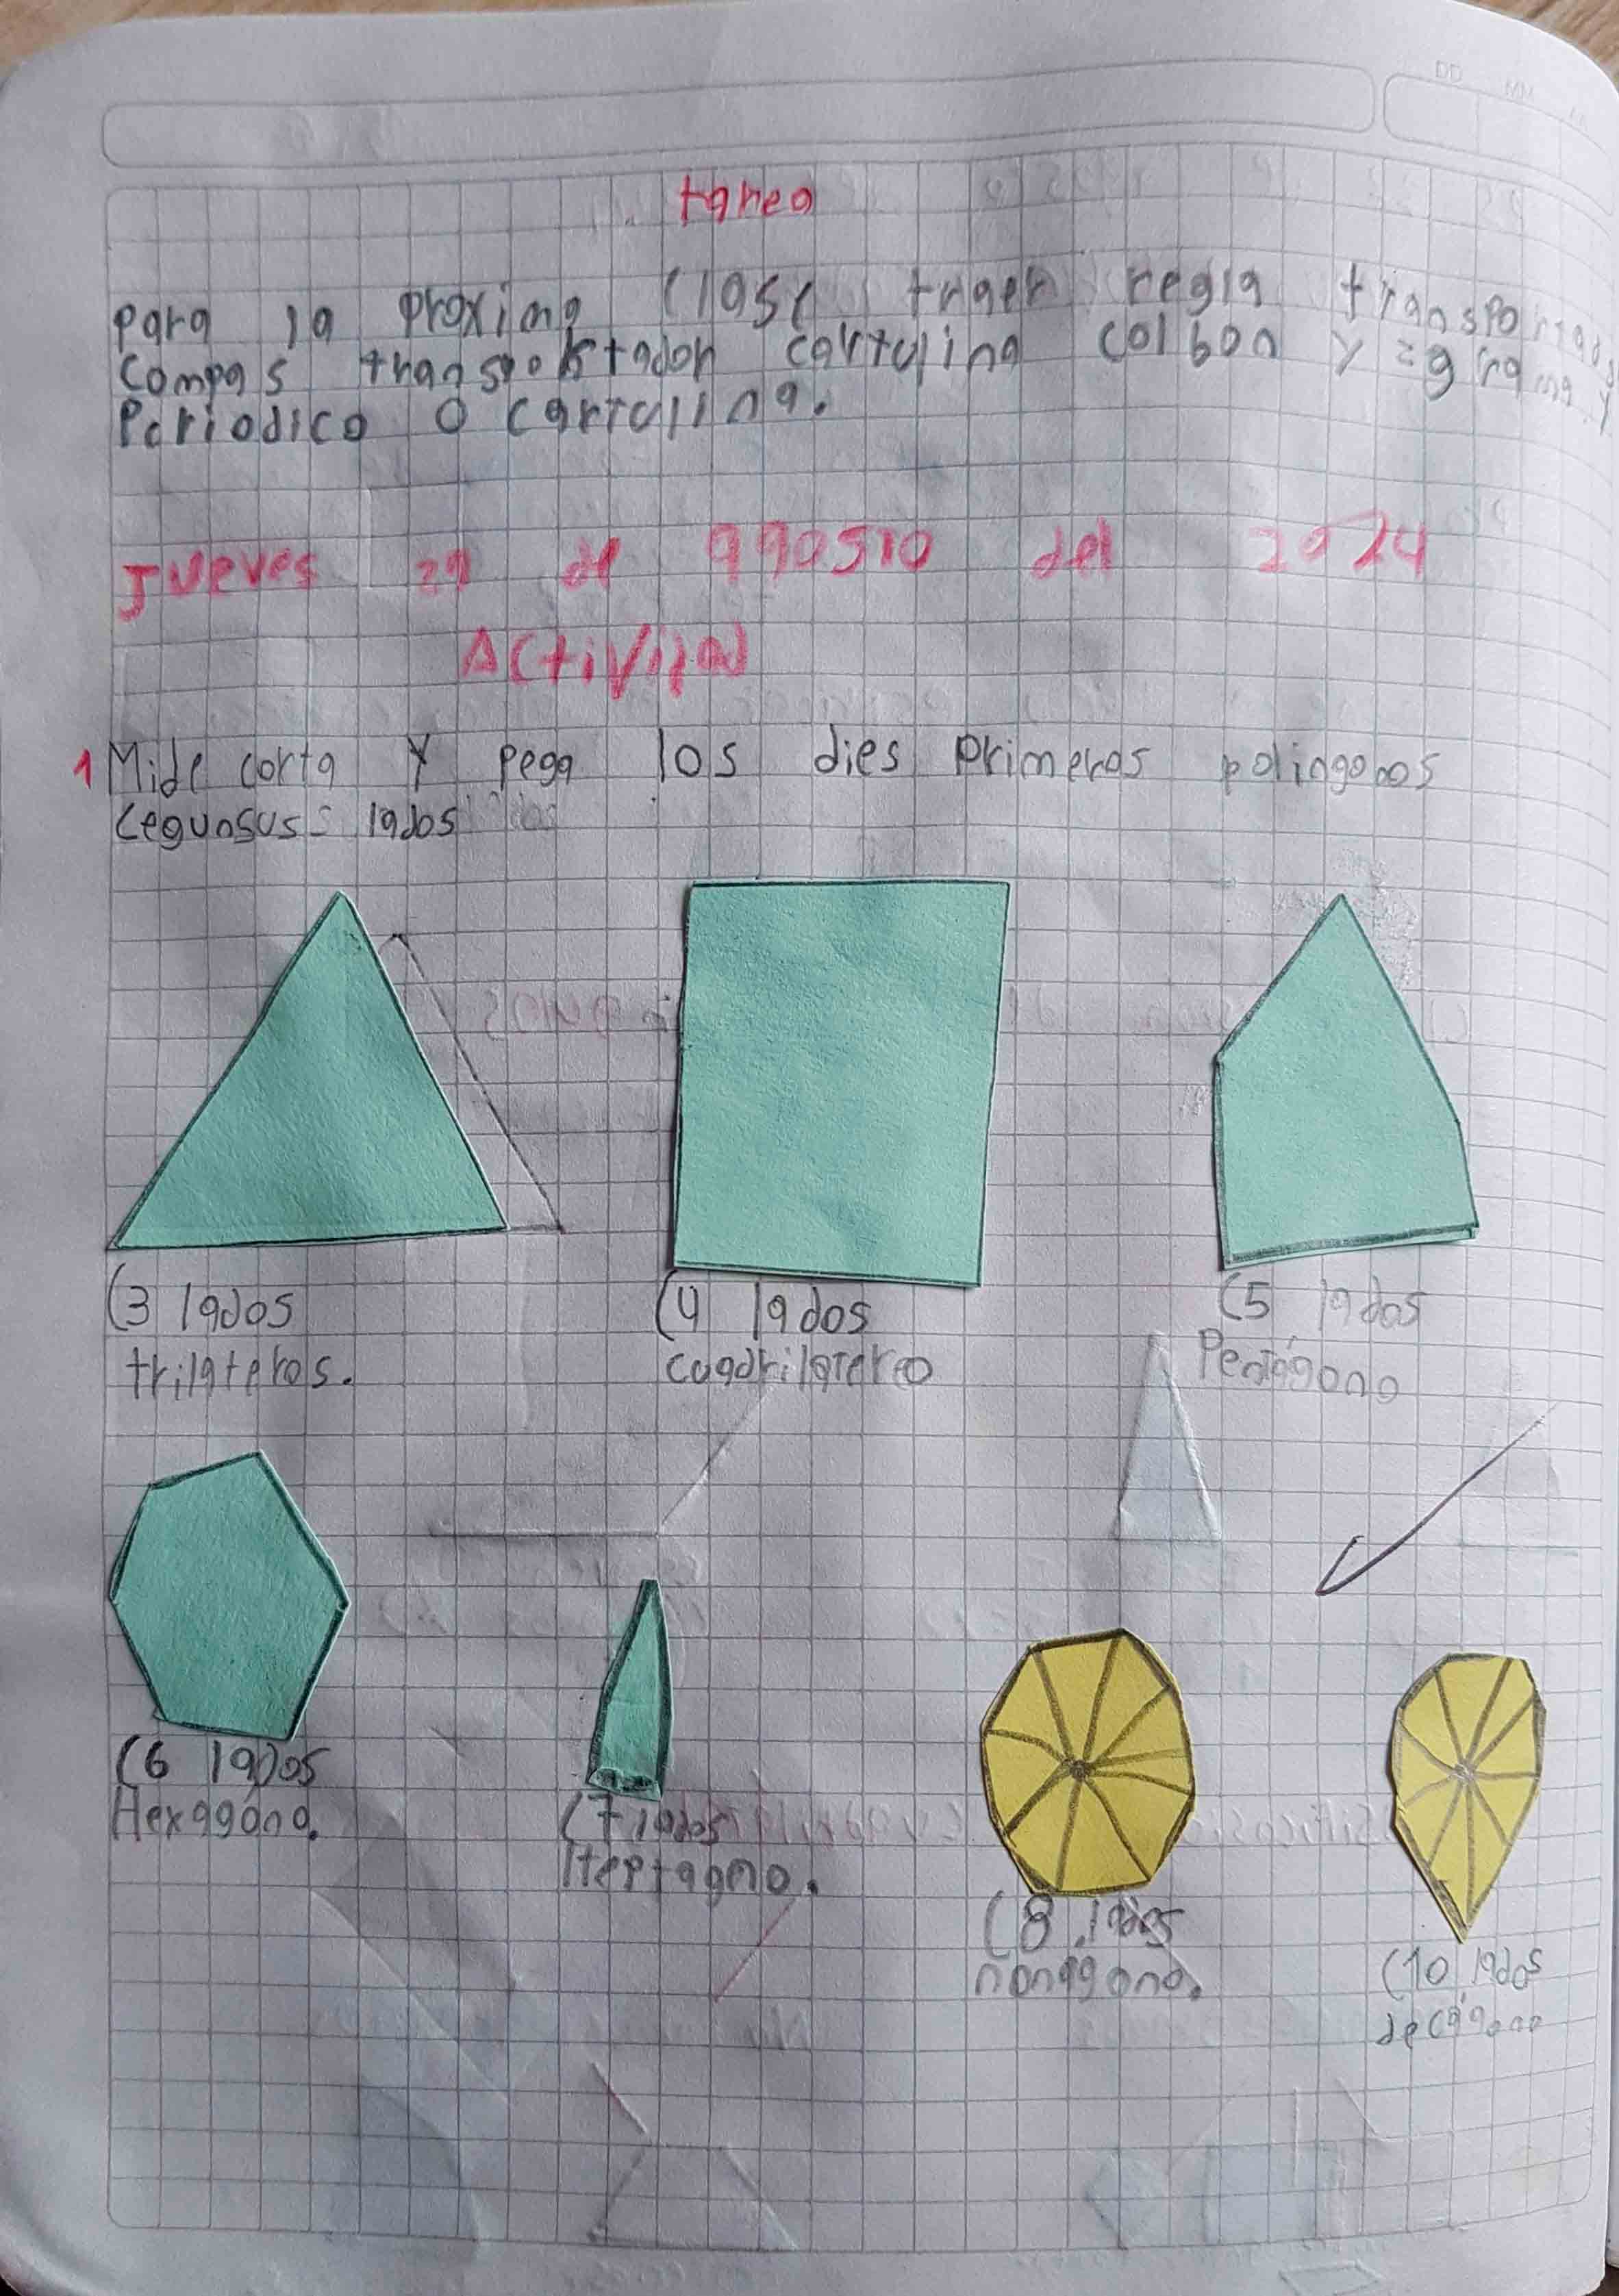 tarea
para la proxima clase traer regla transportador
compas transportador cartulina colbon y
Periodico o cartulina.
Jueves 29 de agosto del 2024
Actividad
1 Mide corta y pega los dies primeros polingonos
cegunsus= lados
(3 lados
trilateros.
(4 lados
cuadrilatereo
(5 lados
Pentágono
(6 lados
Hexagóno.
(7 lados
Heptagno.
(8 lados
nonagono.
(10 lados
decágono